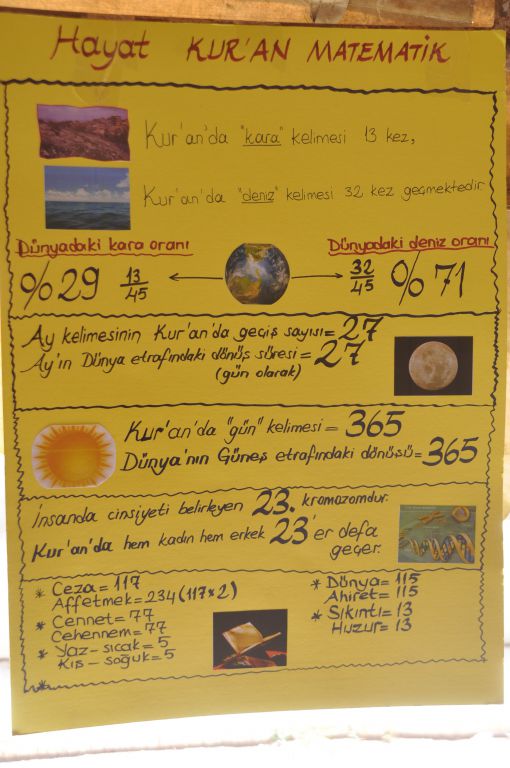 Hayat KUR'AN MATEMATİK
Kur'an'da "kara" kelimesi 13 kez,
Kur'an'da "deniz" kelimesi 32 kez geçmektedir
Dünyadaki kara oranı
%29 13/45
Dünyadaki deniz oranı
32/45 %71
Ay kelimesinin Kur'an'da geçiş sayısı=27
Ay'ın Dünya etrafındaki dönüş süresi=27
(gün olarak)
Kur'an'da "gün" kelimesi=365
Dünya'nın Güneş etrafındaki dönüşü=365
İnsanda cinsiyeti belirleyen 23. kromozomdur.
Kur'an'da hem kadın hem erkek 23'er defa
geçer.
* Ceza=117
Affetmek=234(117x2)
* Cennet=77
Cehennem=77
* Yaz-sıcak=5
Kış-soğuk=5
*
* Dünya=115
Ahiret=115
* Sıkıntı=13
Huzur=13